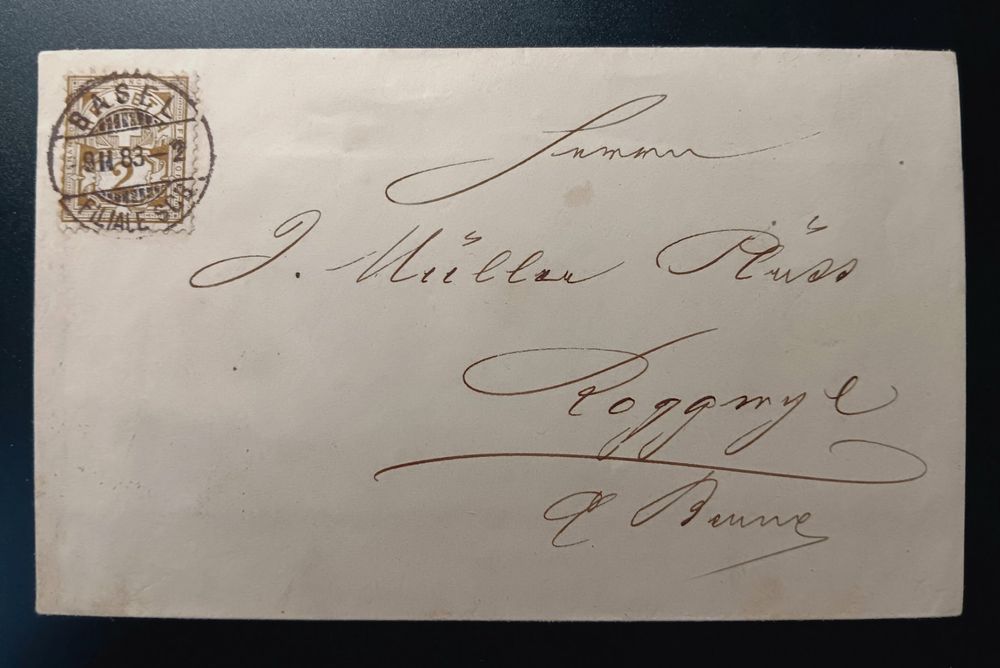 BASEL
9 III. 83 - 2
FILIALE
2
Herrn
J. Müller Plüss
Roggwyl
Ct. Berne